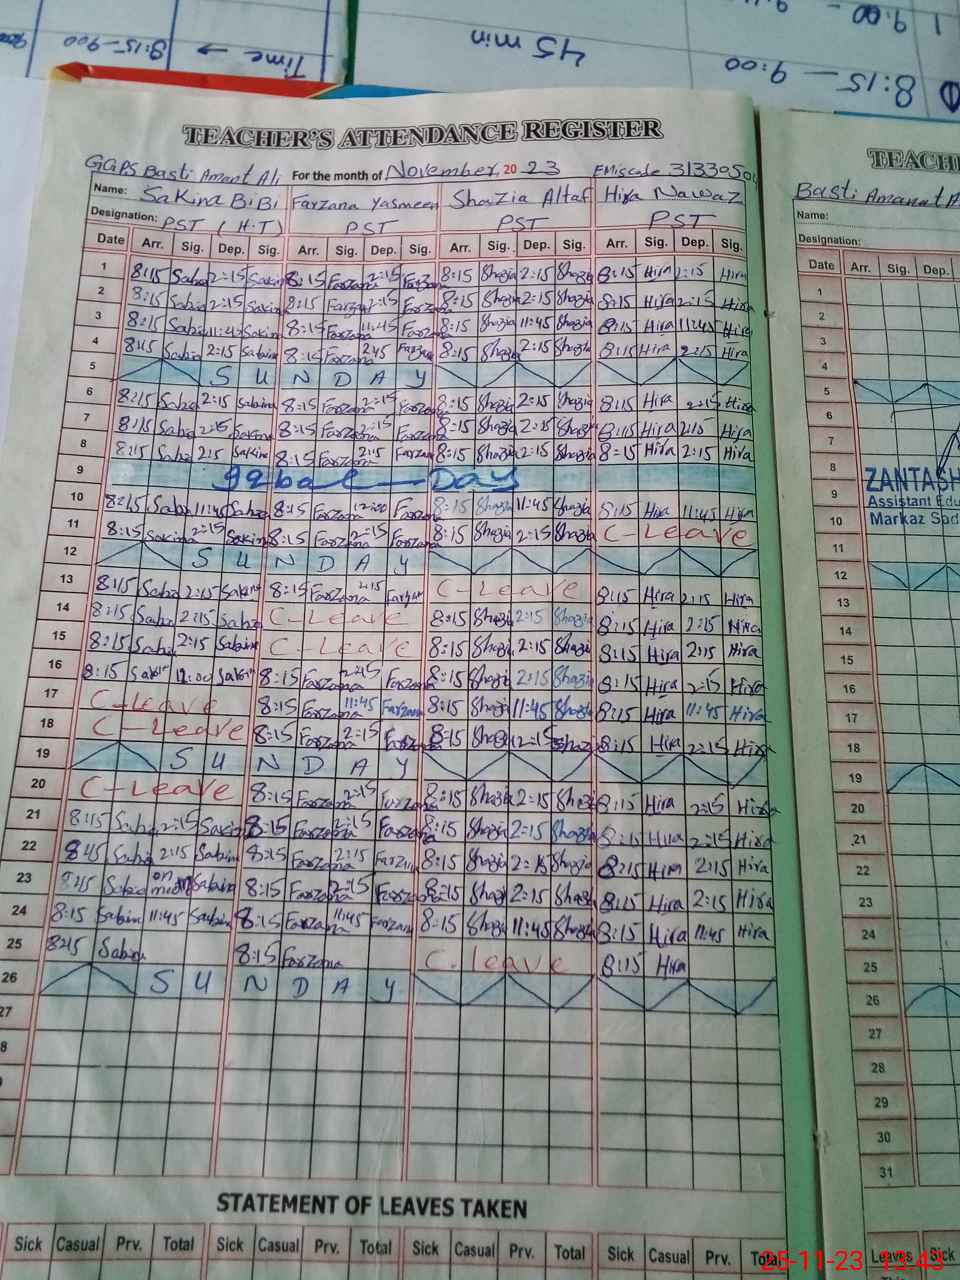 8:15 — 9:00
45 min
9:00 -
1
Time → 8:15-900
TEACHER'S ATTENDANCE REGISTER
GGPS Basti Amant Ali For the month of November, 20 23 EMiscode 3133050
Name: Sakina BiBi Farzana Yasmeen Shazia Altaf Hira Nawaz
Designation: PST (H.T) PST PST PST
Date Arr. Sig. Dep. Sig. Arr. Sig. Dep. Sig. Arr. Sig. Dep. Sig. Arr. Sig. Dep. Sig.
1 8:15 2:15 8:15 2:15 8:15 Shazia 2:15 Shazia 8:15 Hira 2:15 Hira
2 8:15 2:15 8:15 2:15 8:15 Shazia 2:15 Shazia 8:15 Hira 2:15 Hira
3 8:15 11:45 8:15 Farzana 11:45 Farzana 8:15 Shazia 11:45 Shazia 8:15 Hira 11:45 Hira
4 8:15 2:15 8:15 Farzana 8:15 Shazia 2:15 Shazia 8:15 Hira 2:15 Hira
5 SUNDAY
6 8:15 2:15 8:15 Farzana 2:15 Farzana 8:15 Shazia 2:15 Shazia 8:15 Hira 2:15 Hira
7 8:15 8:15 Farzana 2:15 Farzana 8:15 Shazia 2:15 Shazia 8:15 Hira 2:15 Hira
8 8:15 8:15 Farzana 2:15 Farzana 8:15 Shazia 2:15 Shazia 8:15 Hira 2:15 Hira
9 Iqbal — Day
10 8:15 11:45 8:15 Farzana 8:15 Shazia 11:45 Shazia 8:15 Hira 11:45 Hira
11 8:15 Sakina 2:15 Sakina 8:15 Farzana 2:15 Farzana 8:15 Shazia 2:15 Shazia C-Leave
12 SUNDAY
13 8:15 2:15 8:15 Farzana 2:15 C-Leave 8:15 Hira 2:15 Hira
14 8:15 2:15 C-Leave 8:15 Shazia 2:15 Shazia 8:15 Hira 2:15 Hira
15 8:15 2:15 C-Leave 8:15 Shazia 2:15 Shazia 8:15 Hira 2:15 Hira
16 8:15 12:00 8:15 Farzana 2:15 Farzana 8:15 Shazia 2:15 Shazia 8:15 Hira 2:15 Hira
17 C-Leave 8:15 Farzana 11:45 Farzana 8:15 Shazia 11:45 Shazia 8:15 Hira 11:45 Hira
18 C-Leave 8:15 Farzana 2:15 Farzana 8:15 Shazia 2:15 Shazia 8:15 Hira 2:15 Hira
19 SUNDAY
20 C-Leave 8:15 Farzana 2:15 Farzana 8:15 Shazia 2:15 Shazia 8:15 Hira 2:15 Hira
21 8:15 2:15 8:15 Farzana 2:15 Farzana 8:15 Shazia 2:15 Shazia 8:15 Hira 2:15 Hira
22 2:15 8:15 Farzana 2:15 8:15 Shazia 2:15 Shazia 8:15 Hira 2:15 Hira
23 on 8:15 Farzana 2:15 Farzana 8:15 Shazia 2:15 Shazia 8:15 Hira 2:15 Hira
24 8:15 11:45 8:15 Farzana 11:45 Farzana 8:15 Shazia 11:45 Shazia 8:15 Hira 11:45 Hira
25 8:15 8:15 Farzana C-leave 8:15 Hira
26 SUNDAY
27
8
STATEMENT OF LEAVES TAKEN
Sick Casual Prv. Total Sick Casual Prv. Total Sick Casual Prv. Total Sick Casual Prv. Total
TEACH
Basti Amanat A
Name:
Designation:
Date Arr. Sig. Dep.
1
2
3
4
5
6
7
8
ZANTASH
9
Assistant Edu
10
Markaz Sad
11
12
13
14
15
16
17
18
19
20
21
22
23
24
25
26
27
28
29
30
31
Leaves Sick
25-11-23 13:43